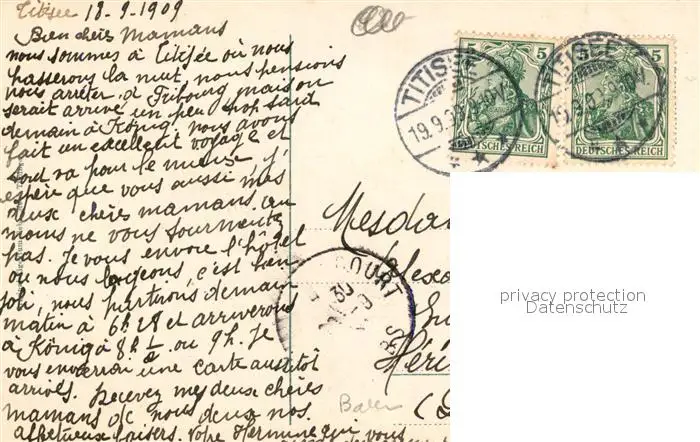 Titisee 18-9-1909
Bien chères Mamans
nous sommes à Titisée où nous
passerons la nuit, nous pensions
nous arrêter à Fribourg mais on
serait arrivé un peu trop tard
demain à König, nous avons
fait un excellent voyage et
tout va pour le mieux, j'
espère que vous aussi mes
deux chères mamans. Au
moins ne vous tourmentez
pas. Je vous envoie l'hôtel
où nous logeons, c'est bien
joli, nous partirons demain
matin à 6h28 et arriverons
à König à 8h ½ ou 9h. Je
vous enverrai une carte aussitôt
arrivés. Recevez mes deux chères
mamans de nous deux nos
affectueux baisers. Votre Hermine qui vous
TITISEE
19.9.09
5
5
DEUTSCHES REICH
TITISEE
19.9.0
5
DEUTSCHES REICH
Mesda
lexa
Héri
(
COURT
30
Baden
privacy protection
Datenschutz